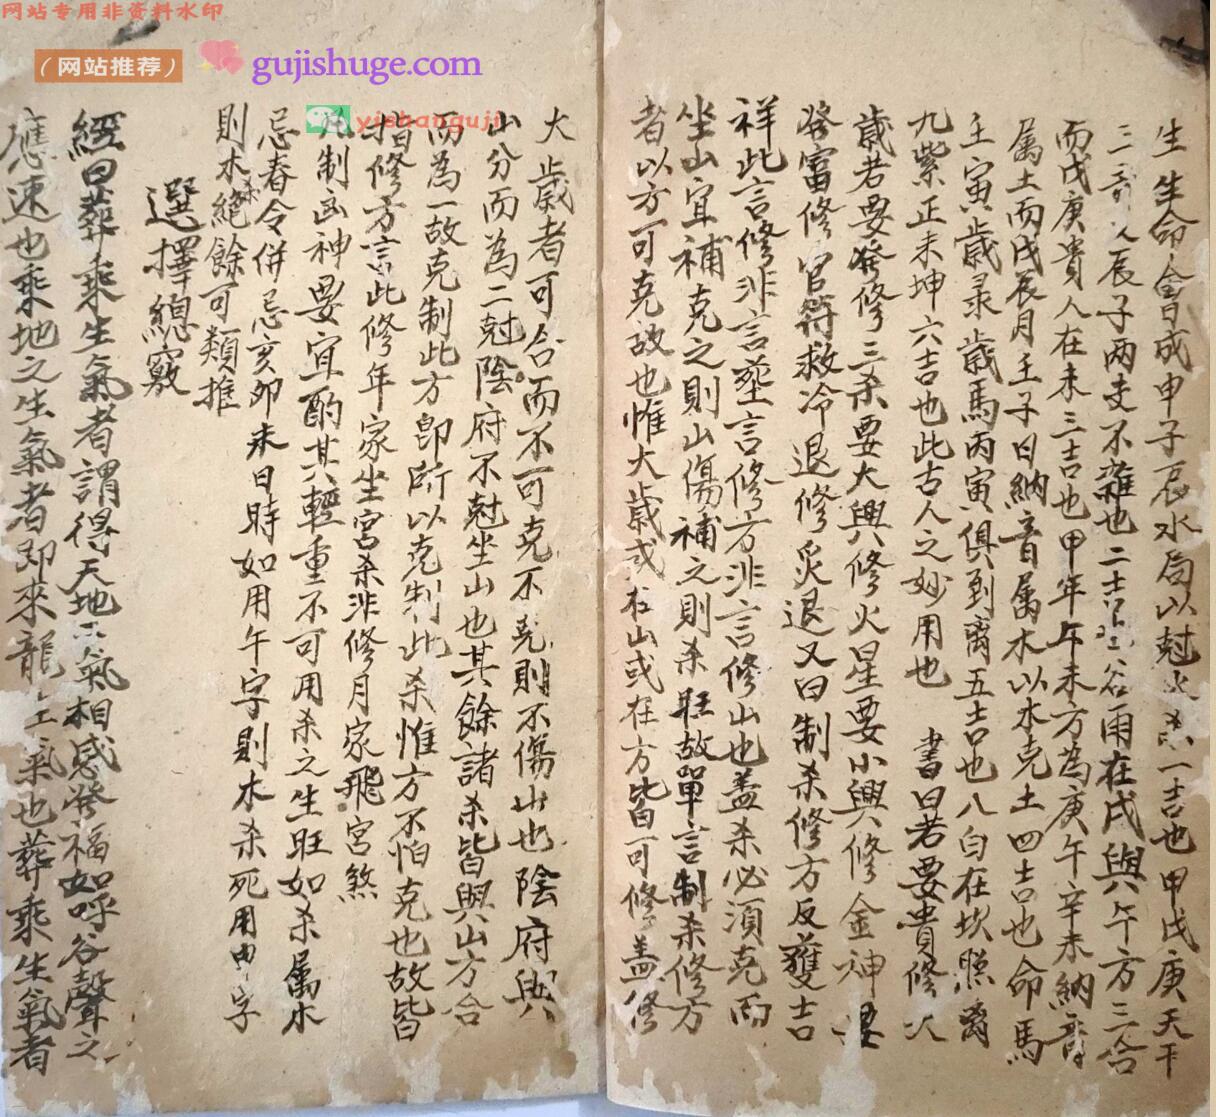 网站专用非资料水印
(网站推荐)
gujishuge.com
yishanguji
生生命會成申子辰水局以尅火杀一吉也甲戊庚天干
三奇人辰子两支不雜也二土谷雨在戌與午方三合
而戊庚貴人在未三吉也甲年午未方為庚午辛未納音
属土而戊辰月壬子日納音属木以木克土四吉也命馬
壬寅歲录歲馬丙寅俱到離五吉也八白在坎照离
九紫正未坤六吉也此古人之妙用也 書曰若要貴修
歲若要發修三杀要大興修火星要小興修金神要
發富修官符救冷退修炙退又曰制杀修方反獲吉
祥此言修非言塟言修方非言修山也盖杀必須克而
坐山宜補克之則山傷補之則杀旺故單言制杀修方
者以方可克故也惟大歲或在山或在方皆可修盖修
大歲者可合而不可克不克則不傷山也陰府與
山分而為二尅陰府不尅坐山也其餘諸杀皆與山方合
而為一故克制此方卽所以克制此杀惟方不怕克也故皆
指修方言此修年家坐宮杀非修月家飛宮煞
凡制凶神要宜酌其輕重不可用杀之生旺如杀属水
忌春令併忌亥卯未日時如用午字則木杀死用申字
則木絕餘可類推
選擇總竅
經曰葬乘生氣者謂得天地之氣相感發福如呼谷聲之
應速也乘地之生氣者即來龍生氣也葬乘生氣者